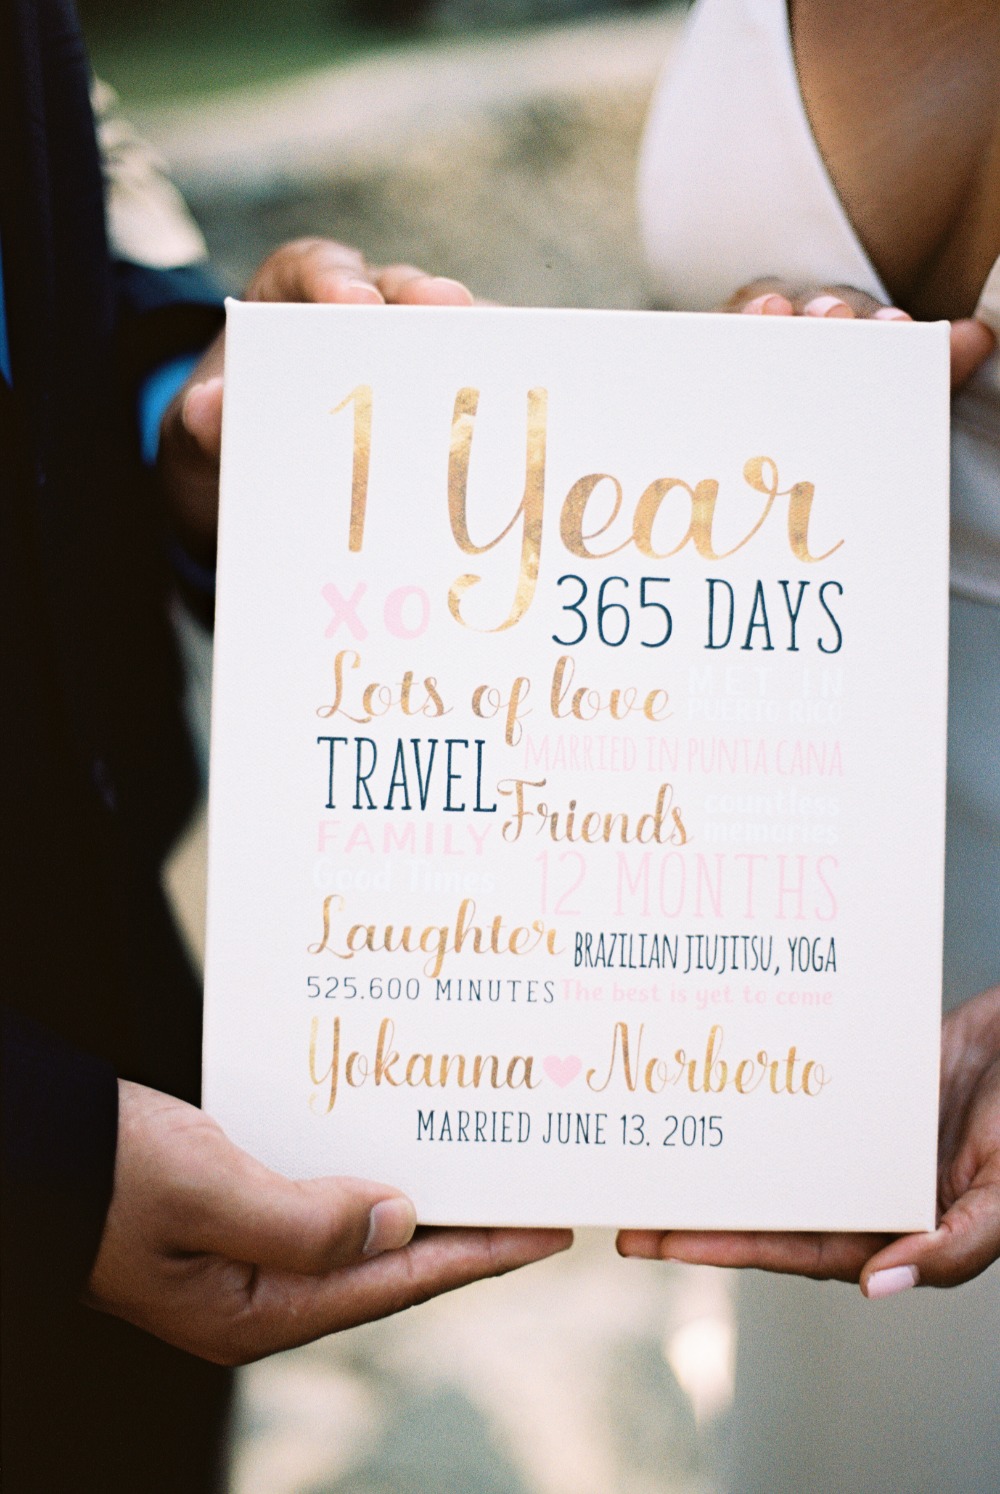 1 Year
xo 365 DAYS
Lots of love MET IN
PUERTO RICO
TRAVEL MARRIED IN PUNTA CANA
Friends countless
memories
FAMILY
Good Times 12 MONTHS
Laughter BRAZILIAN JIUJITSU, YOGA
525.600 MINUTES The best is yet to come
Yokanna Norberto
MARRIED JUNE 13. 2015